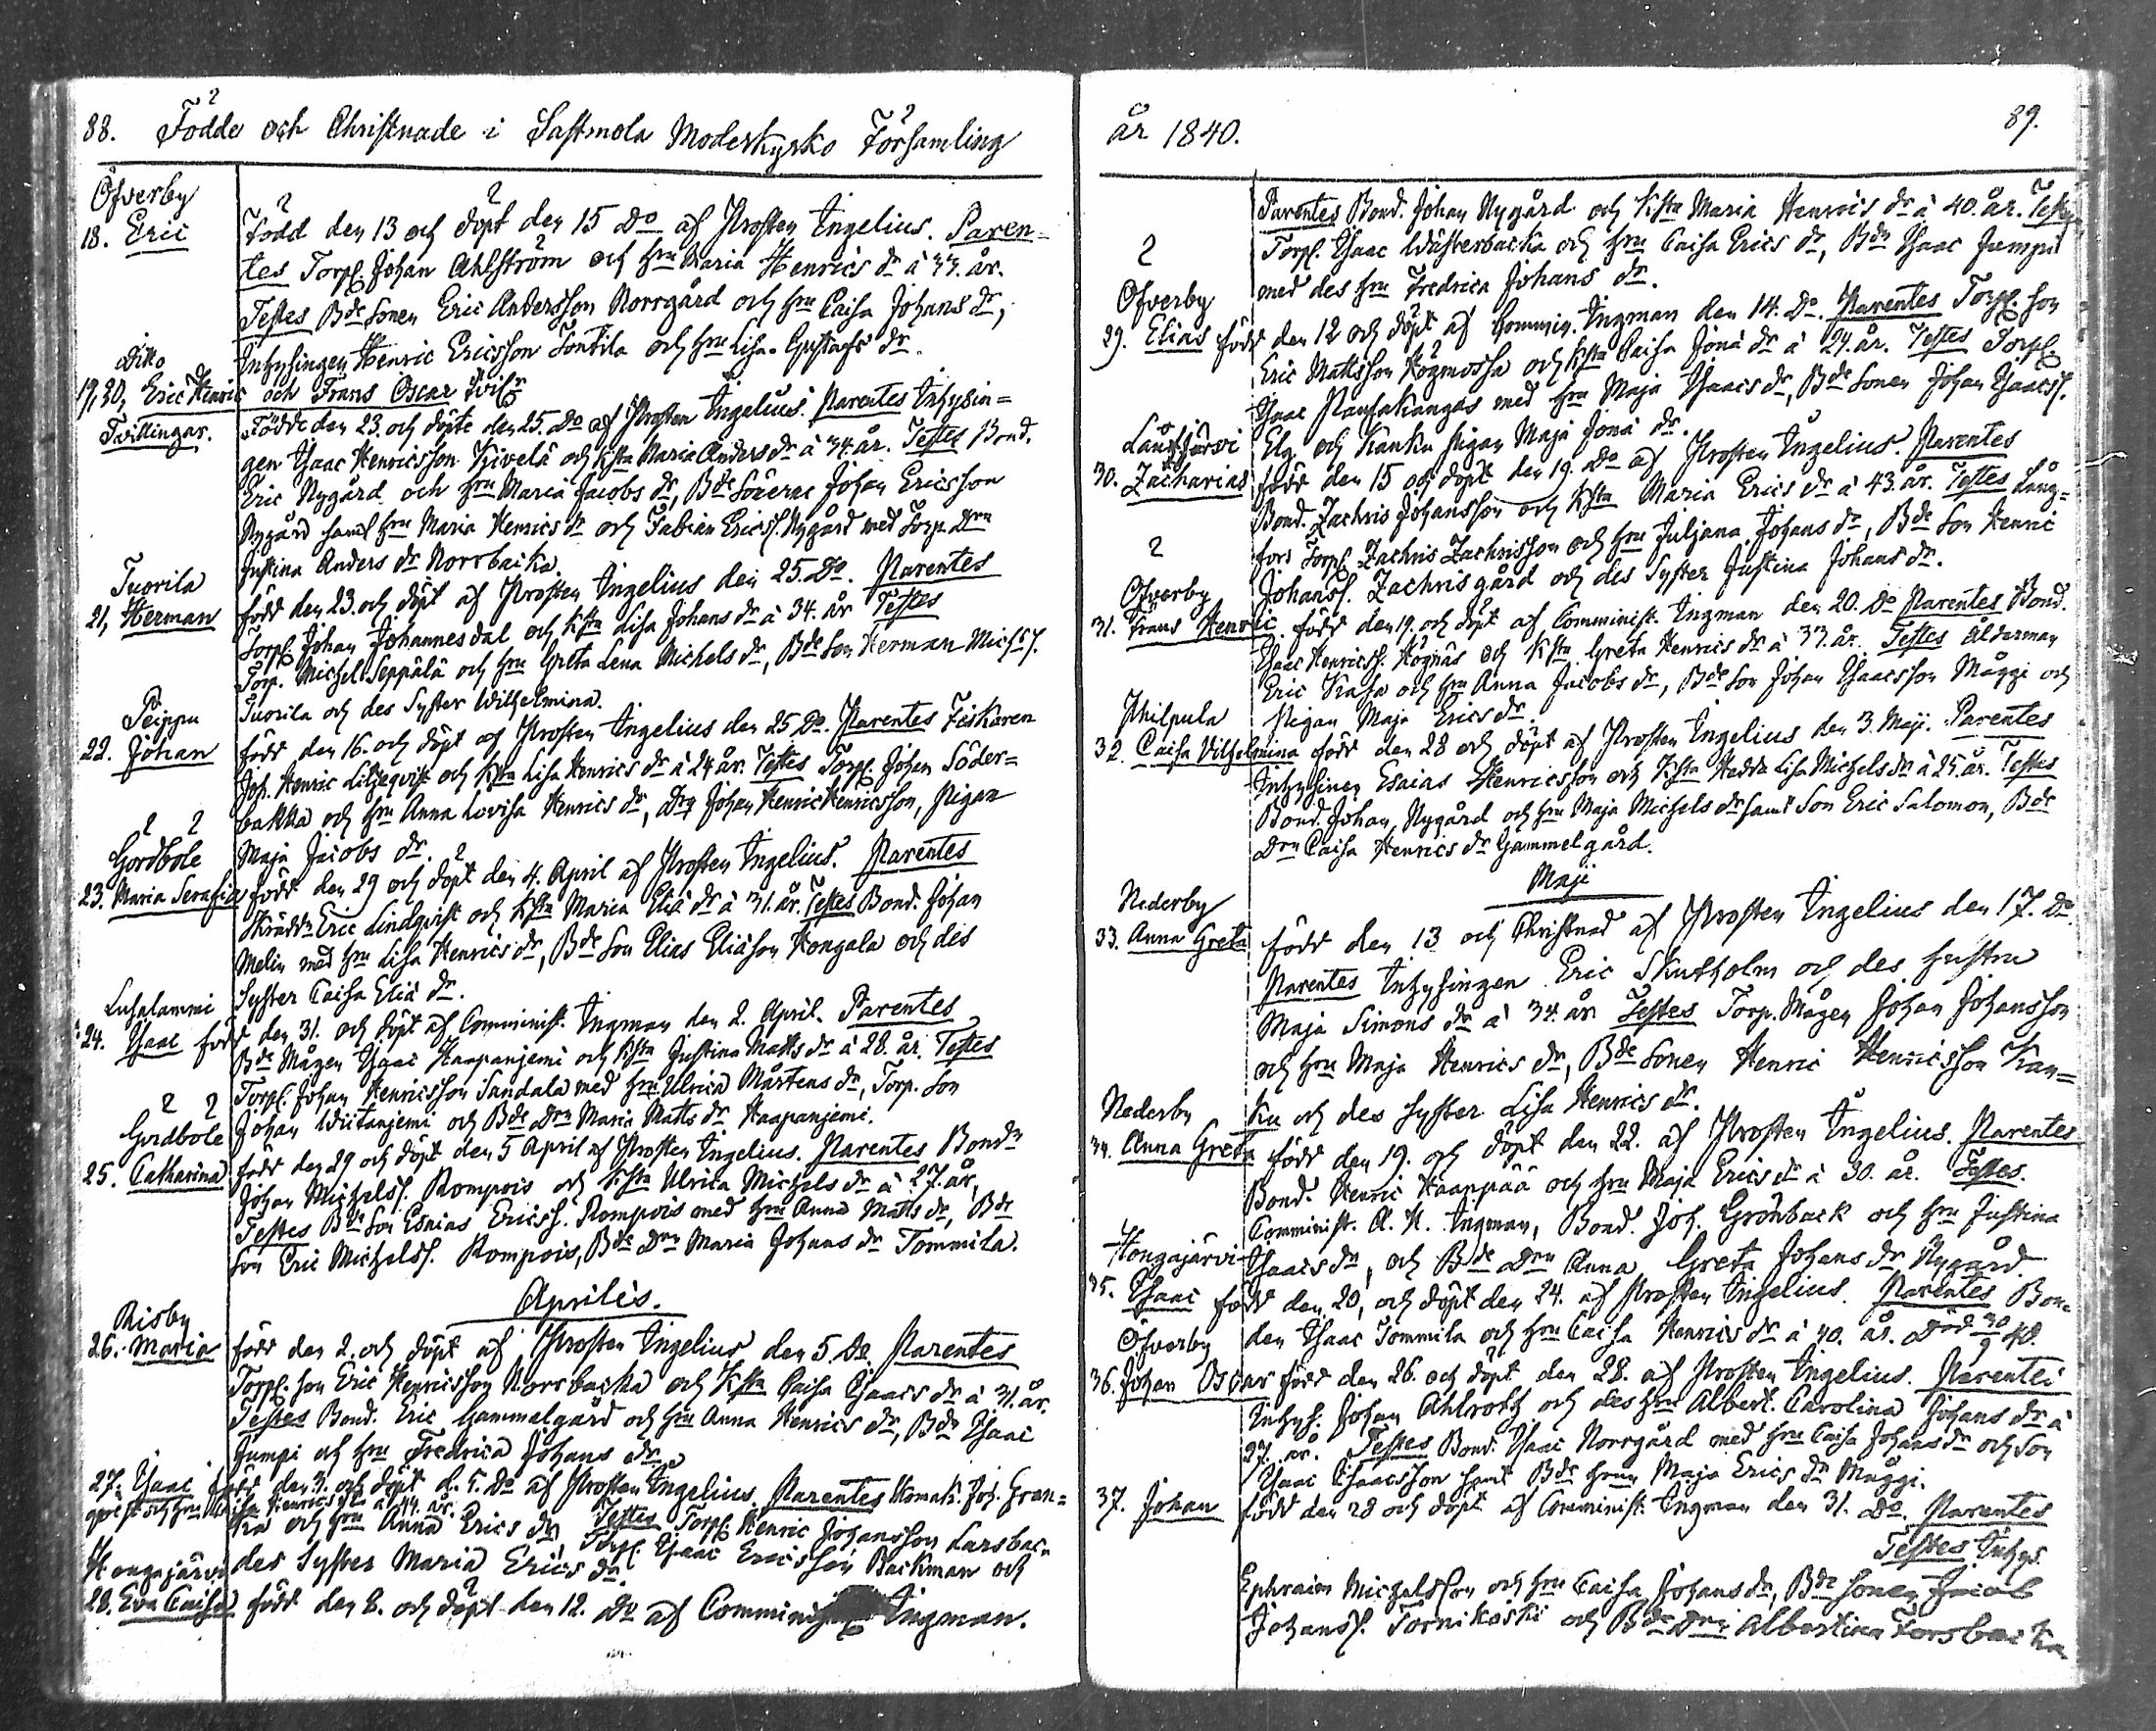 88. Födde och Christnade i Sastmola Moderkyrko Församling
Öfverby
18. Eric Född den 13 och döpt den 15 Do af Prosten Ingelius. Paren=
tes Torp. Johan Ahlström och Hru Maria Henrics dr à 33. år.
Testes Bde Sonen Eric Andersson Norrgård och hru Caisa Johans dr,
Inhysingen Henric Ericsson Sontila och hru Lisa Gustafs dr.
Dito
19, 20, Eric Henric och Frans Oscar
Tvillingar. Födde den 23. och döpte den 25. Do af Prosten Ingelius. Parentes Inhysin=
gen Isaac Henricsson Kivelä och hsta Maria Anders dr à 34. år. Testes Bond.
Eric Nygård och hru Maria Jacobs dr, Bde Sönerne Johan Ericsson
Nygård samt hru Maria Henrics dr och Fabian Ericss. Nygård med Torp. Drn
Justina Anders dr Norrbacka.
Tuorila
21, Herman född den 23. och döpt af Prosten Ingelius den 25. Do. Parentes
Torp. Johan Johannesdal och hsta Lisa Johans dr à 34. år Testes
Torp. Michel Seppälä och hru Greta Lena Michels dr, Bde Son Herman Michss.
Tuorila och des Syster Wilhelmina.
Peippu
22. Johan född den 16. och döpt af Prosten Ingelius den 25 Do. Parentes Fiskaren
Joh. Henric Liljeqvist och hsta Lisa Henrics dr à 24 år. Testes Torp. Johan Söder=
bakka och hru Anna Lovisa Henrics dr, Drn Johan Henric Henricsson, Pigan
Maja Jacobs dr.
Gordböle
23. Maria Serafia född den 29 och döpt den 4. April af Prosten Ingelius. Parentes
Skräddn Eric Lindqvist och hsta Maria Eliä dr à 31. år. Testes Bond. Johan
Melin med hru Lisa Henrics dr, Bde Son Elias Eliäson Kongala och des
Syster Caisa Eliä dr.
Lusalammi
24. Isaac född den 31. och döpt af Comminist. Ingman den 2. April. Parentes
Bde Mågen Isaac Haapanjemi och hsta Justina Matts dr à 28. år. Testes
Torp. Johan Henricsson Sandala med hru Ulrica Mårtens dr, Torp. Son
Johan Wiitanjemi och Bde Drn Maria Matts dr Haapanjemi.
Gordböle
25. Catharina född den 29 och döpt den 5 April af Prosten Ingelius. Parentes Bondn
Johan Michelss. Rompois och hsta Ulrica Michels dr à 27. år,
Testes Bde Son Esaias Ericss. Rompois med hru Anna Matts dr, Bde
Son Eric Michelss. Rompois, Bde Drn Maria Johans dr Tommila.
Aprilis.
Risby
26. Maria född den 2. och döpt af Prosten Ingelius den 5. Do. Parentes
Torp. Son Eric Henricsson Norrbacka och hsta Caisa Isaacs dr à 31. år.
Testes Bond. Eric Gammelgård och hru Anna Henrics dr, Bdn Isaac
Jumpi och hru Fredrica Johans dr.
27. Isaac född den 3. och döpt d. 5. Do af Prosten Ingelius. Parentes Joh. Gran=
qvist och hru Henrics dr à 44. år. Testes Torp. Henric Johansson Larsbac=
ka och hru Anna Erics dr, Torp. Isaac Ericsson Backman och
des Syster Maria Erics dr.
Hongajärvi
28. Eva Caisa född den 8. och döpt den 12. Do af Comminist. Ingman.
år 1840. 89.
Parentes Bond. Johan Nygård och hsta Maria Henrics dr à 40. år. Testes
Torp. Isaac Wästerbacka och hru Caisa Erics dr, Bdn Isaac Jumpi
med des hru Fredrica Johans dr.
Öfverby
29. Elias född den 12 och döpt af Commin. Ingman den 14. Do. Parentes Torp. Son
Eric Mattsson Högmossa och hsta Caisa Jonä dr à 29. år. Testes Torp.
Isaac Pansakangas med hru Maja Isaacs dr, Bde Sonen Johan Isaacss.
Elg och Kanku pigan Maja Jonä dr.
Lautjärvi
30. Zacharias född den 15 och döpt den 19. Do af Prosten Ingelius. Parentes
Bond. Zachris Johansson och hsta Maria Erics dr à 43. år. Testes Lång=
fors Torp. Zachris Zachrisson och hru Juljana Johans dr, Bde Son Henric
Johanss. Zachrisgård och des Syster Justina Johans dr.
Öfverby
31. Frans Henric född den 19. och döpt af Comminist. Ingman den 20. Do Parentes Bond.
Isaac Henricss. Högnäs och hsta Greta Henrics dr à 33. år. Testes Ålderman
Eric Krasa och hru Anna Jacobs dr, Bde Son Johan Isaacsson Måggi och
Pigan Maja Erics dr.
Philpula
32. Caisa Vilhelmina född den 28 och döpt af Prosten Ingelius den 3. Maji. Parentes
Inhysingen Esaias Henricsson och hsta Hedda Lisa Michels dr à 25. år. Testes
Bond. Johan Nygård och hru Maja Michels dr samt Son Eric Salomon, Bde
Drn Caisa Henrics dr Gammelgård.
Maji
Nederby
33. Anna Greta född den 13 och Christnad af Prosten Ingelius den 17. Do
Parentes Inhysingen Eric Skutholm och des hustru
Maja Simons dr à 34. år Testes Torp. Mågen Johan Johansson
och hru Maja Henrics dr, Bde Sonen Henric Henricsson Kan=
ku och des Syster Lisa Henrics dr.
Nederby
34. Anna Greta född den 19. och döpt den 22. af Prosten Ingelius. Parentes
Bond. Henric Haanpää och hru Maja Erics dr à 30. år. Testes.
Comminist. A. H. Ingman, Bond. Joh. Grönback och hru Justina
Isaacs dr, och Bde Drn Anna Greta Johans dr Nygård
Hongajärvi
35. Isaac född den 20, och döpt den 24. af Prosten Ingelius. Parentes Bon=
den Isaac Tommila och hru Caisa Henrics dr à 40. år. Död 30/9 40.
Öfverby
36. Johan Oscar född den 26. och döpt den 28. af Prosten Ingelius. Parentes
Inhys. Johan Ahlroth och des hru Albert. Carolina Johans dr à
27. år. Testes Bond. Isaac Norrgård med hru Caisa Johans dr och Son
Isaac Isaacsson samt Bde hrun Maja Erics dr Måggi.
37. Johan född den 28 och döpt af Comminist. Ingman den 31. Do. Parentes
Testes Inhys.
Ephraim Michelsson och hru Caisa Johans dr, Bde Sonen Jacob
Johanss. Tornikoski och Bde Drn Albertina Forsbacka